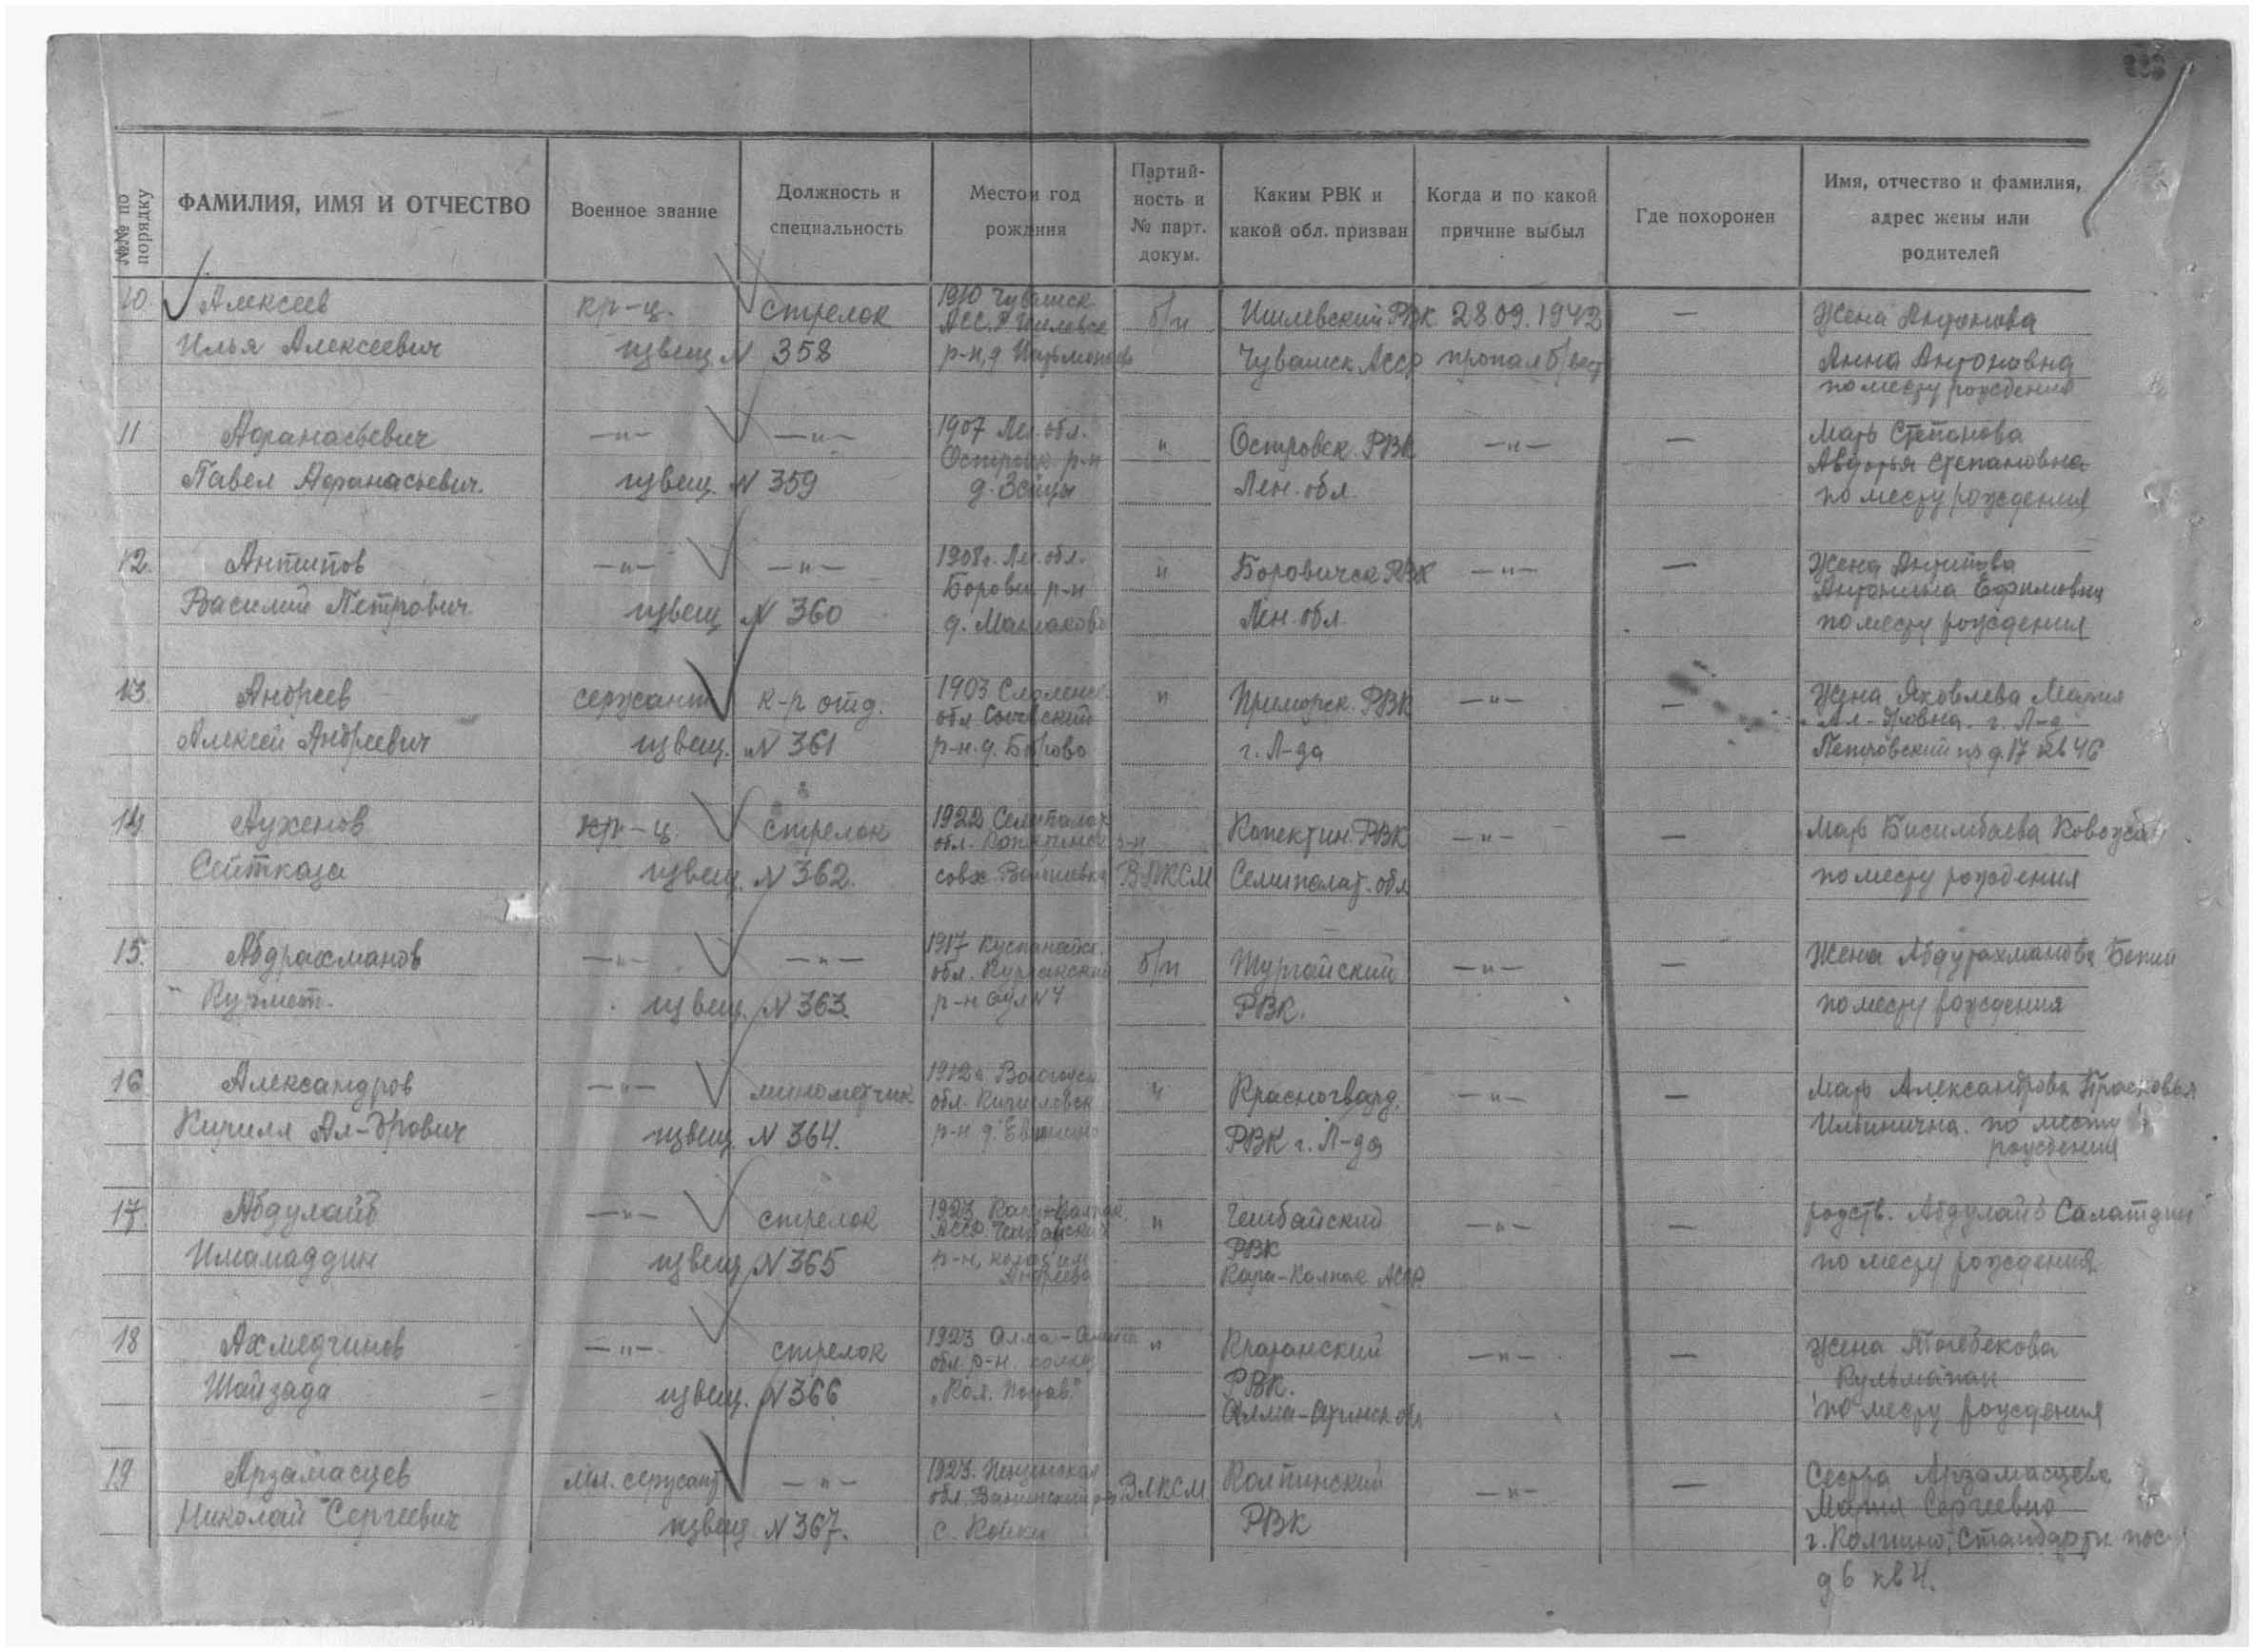 №№ по порядку
ФАМИЛИЯ, ИМЯ И ОТЧЕСТВО
Военное звание
Должность и специальность
Место и год рождния
Партий-ность и № парт. докум.
Каким РВК и какой обл. призван
Когда и по какой причине выбыл
Где похоронен
Имя, отчество и фамилия, адрес жены или родителей
10. Алексеев кр-ц. стрелок 1910 Чувашск. б/п Ишлевский РВК 28.09.1942 — Жена Антонова
АССР Ишлевск
Илья Алексеевич извещ N 358 р-н, д Чувашск АССР пропал б/вест Анна Антоновна
по месту рождения
11 Афанасьевич —"— —"— 1907 Лен. обл. " Островск. РВК —"— — Мать Степанова
р-н Авдотья Степановна
Павел Афанасьевич. извещ. N 359 д. Лен. обл. по месту рождения
12. Антипов —"— —"— 1908г. Лен. обл. " Боровичск РВК —"— — Жена Антипова
Борович р-н Антонина Ефимовна
Василий Петрович извещ N 360 д. Лен. обл. по месту рождения
13. Андреев сержант к-р отд. 1903 Смоленск. " Приморск. РВК —"— — Жена Яковлева Мария
обл. Ал-дровна. г. Л-д
Алексей Андреевич извещ. N 361 р-н. д. г. Л-да Петровский пр д.17 кв 46
14. Ауженов кр-ц. стрелок 1922 Семипалат Кокектин. РВК —"— — Мать Бисимбаева
обл. р-н
Сейтказа извещ. N 362. совх. ВЛКСМ Семипалат. обл по месту рождения
15. Абдрахманов —"— —"— 1917 Кустанайск. б/п Тургайский —"— — Жена Абдурахманова
обл.
Курмет. извещ. N 363. р-н аул N 4 РВК. по месту рождения
16 Александров —"— минометчик 1912г Вологодск " Красногвард. —"— — Мать Александрова Прасковья
обл. Кирилловск Ильинична. по месту
Кирилл Ал-дрович извещ. N 364. р-н д. РВК г. Л-да рождения
17. Абдулаив —"— стрелок 1923 Кара-Калпак " Чимбайский —"— — родств. Абдулаив Салатдин
АССР Чимбайский РВК
Имамаддин извещ N 365 р-н, Кара-Калпак АССР по месту рождения
18 Ахмедчинов —"— стрелок 1923 Алма-Атинск " —"— — Жена
обл. р-н. колхоз РВК.
Шайзада извещ. N 366 Алма-Атинск обл по месту рождения
19 Арзамасцев мл. сержант —"— 1923. Пензинская ВЛКСМ Колпинский —"— — Сестра Арзамасцева
обл. Мария Сергеевна
Николай Сергеевич извещ. N 367. с. РВК г. Колпино, Стандартн. пос
д 6 кв 4.